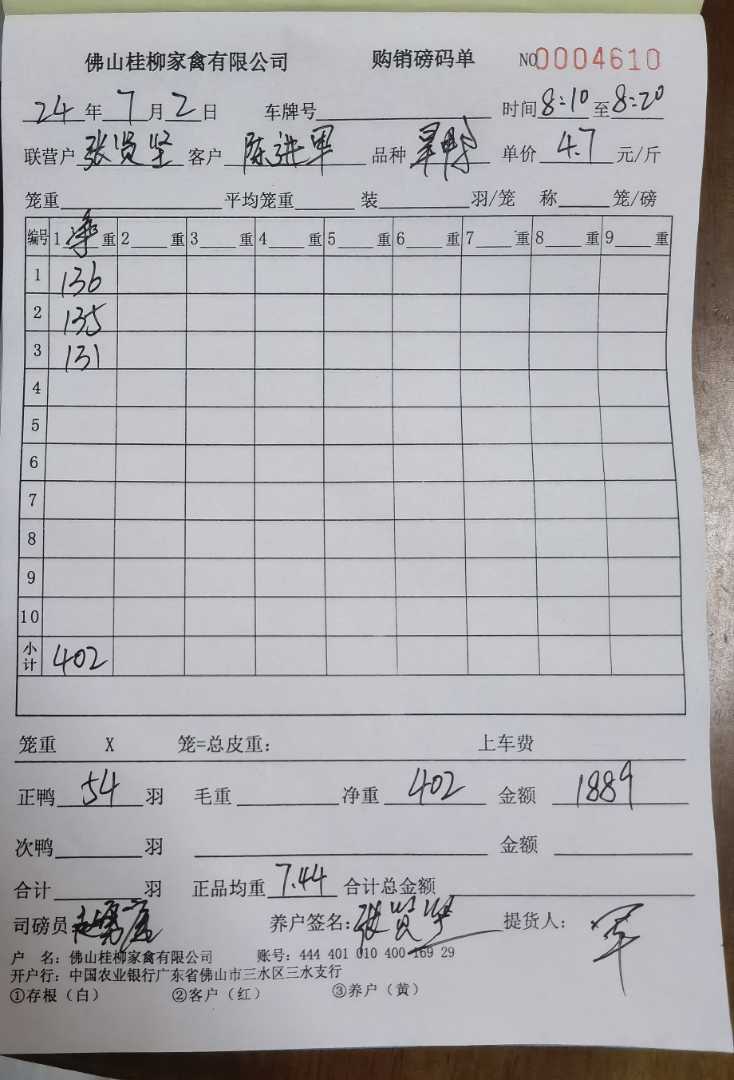 佛山桂柳家禽有限公司 购销磅码单 NO0004610
24年7月2日 车牌号 时间8:10至8:20
联营户张贤坚 客户陈进军 品种 单价4.7元/斤
笼重 平均笼重 装 羽/笼 称 笼/磅
编号 1净重 2重 3重 4重 5重 6重 7重 8重 9重
1 136
2 135
3 131
4
5
6
7
8
9
10
小计 402
笼重 X 笼=总皮重: 上车费
正鸭54羽 毛重 净重402 金额1889
次鸭 羽 金额
合计 羽 正品均重7.44 合计总金额
司磅员: 养户签名:张贤坚 提货人:军
户 名:佛山桂柳家禽有限公司 账号:444 401 010 400 169 29
开户行:中国农业银行广东省佛山市三水区三水支行
①存根(白) ②客户(红) ③养户(黄)